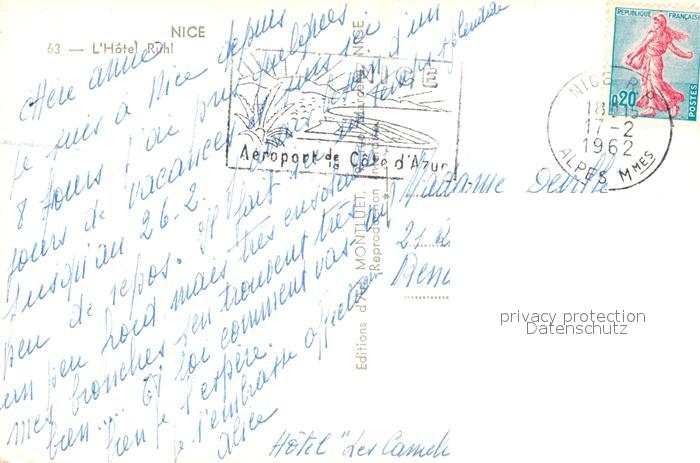 NICE
63 — L'Hôtel Ruhl
Chère amie
Je suis à Nice depuis
8 jours j'ai pris quelques
jours de vacances et suis ici
jusqu'au 26-2. d'un
peu de repos. Il fait un temps splendide
un peu froid mais très ensoleillé
mes bronches s'en trouvent très
bien.... Et toi comment vas-tu
bien je l'espère.
je t'embrasse affection
Alice
Hôtel "Les Camél
NICE
Aéroport de la Côte d'Azur
Editions d'Art MONTLUET
NISE
Reproduction
REPUBLIQUE FRANÇAISE
0,20
POSTES
NICE R.P.
18H15
17-2
1962
ALPES MMES
Madame Deville
21
privacy protection
Datenschutz